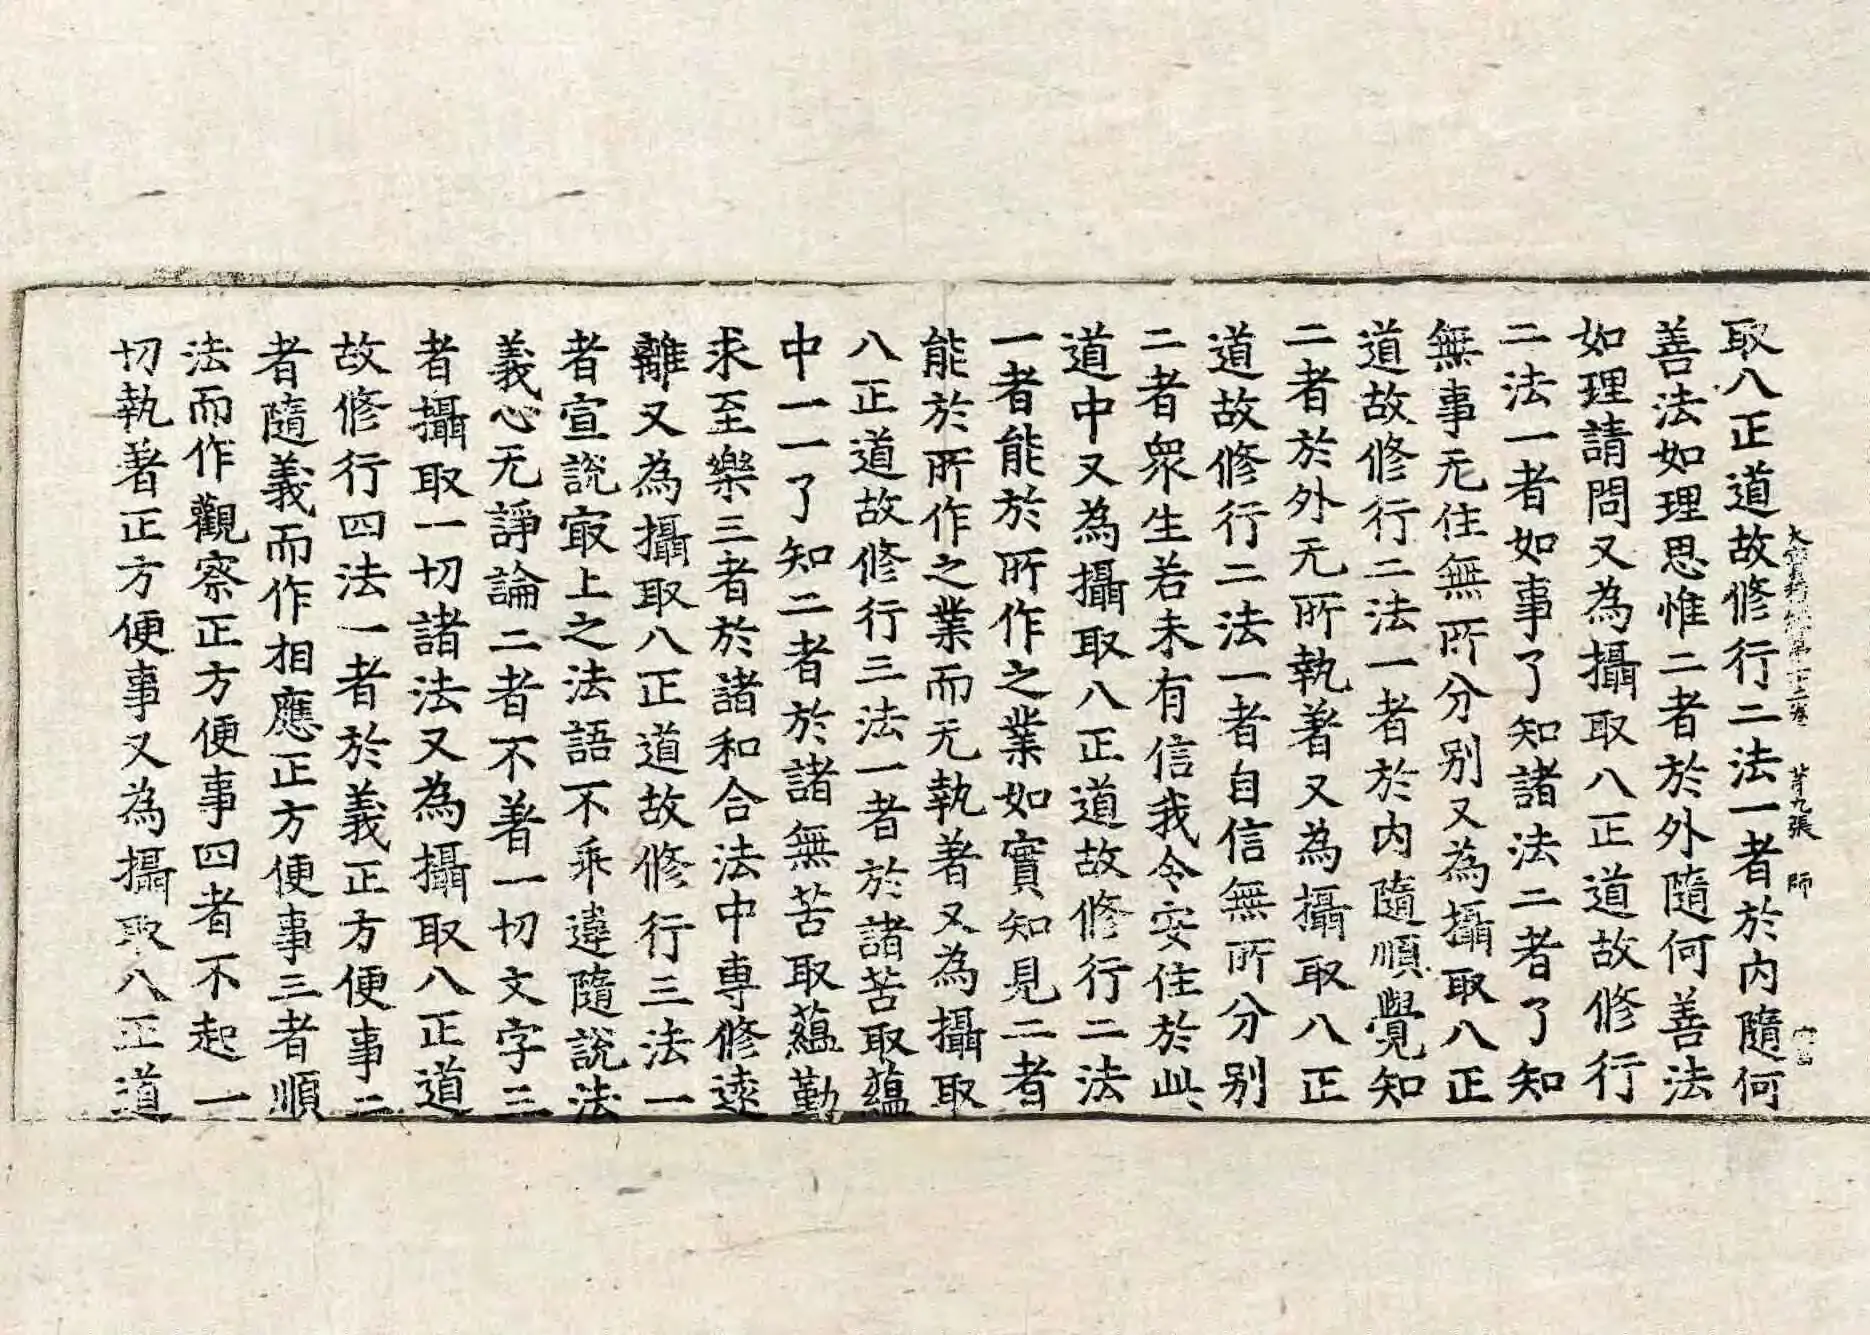 取八正道故修行二法一者於内隨何
善法如理思惟二者於外隨何善法
如理請問又為攝取八正道故修行
二法一者如事了知諸法二者了知
無事无住無所分别又為攝取八正
道故修行二法一者於内隨順覺知
二者於外无所執著又為攝取八正
道故修行二法一者自信無所分别
二者衆生若未有信我令安住於此
道中又為攝取八正道故修行二法
一者能於所作之業如實知見二者
能於所作之業而无執著又為攝取
八正道故修行三法一者於諸苦取蘊
中一一了知二者於諸無苦取蘊勤
求至樂三者於諸和合法中専修逺
離又為攝取八正道故修行三法一
者宣說㝡上之法語不乖違隨說法
義心无諍論二者不著一切文字三
者攝取一切諸法又為攝取八正道
故修行四法一者於義正方便事二
者隨義而作相應正方便事三者順
法而作觀察正方便事四者不起一
切執著正方便事又為攝取八正道
第九張 師